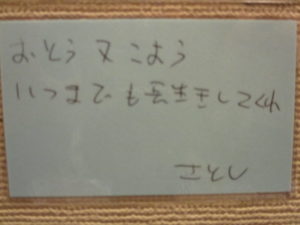 おとう又こよう
いつまでも長生きしてくれ
さとし